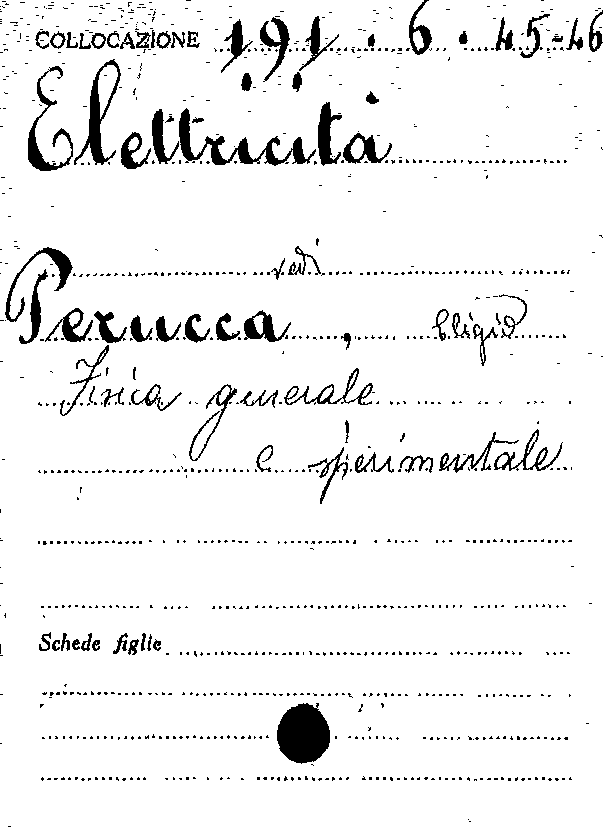 COLLOCAZIONE 191. 6. 45-46
Elettricità
vedi
Perucca, Eligio
Fisica generale
e sperimentale
Schede figlie